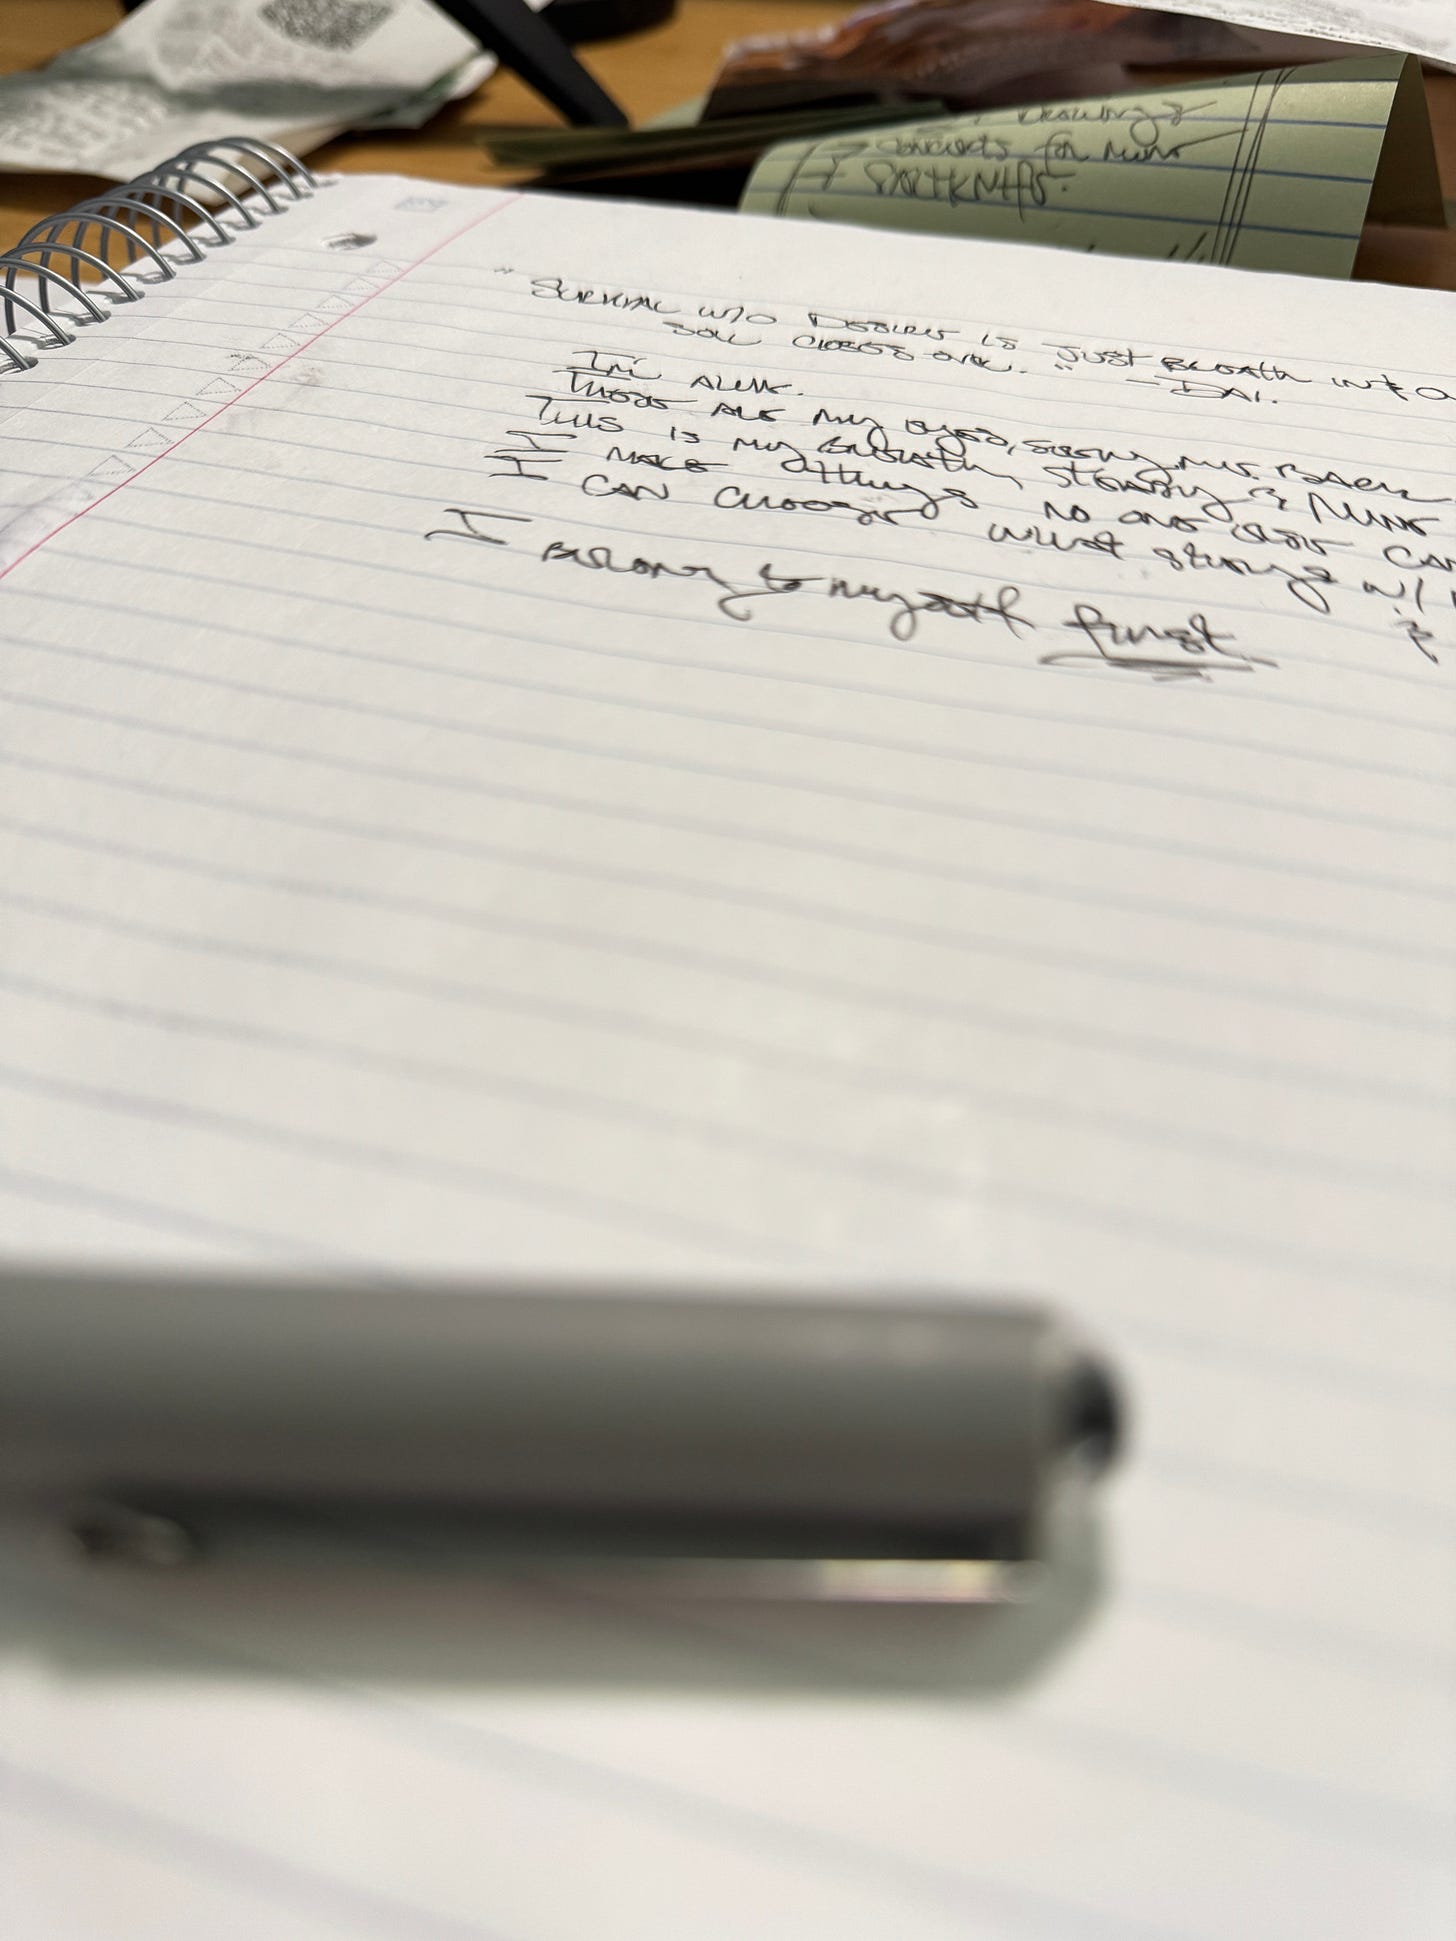 Drawings
→ concepts for MINT
"SURVIVAL W/O DESIRE IS JUST BREATH INTO
SOIL CLOSES OVER." -DAI.
I'm ALIVE.
THOSE ARE MY EYES, SEEING ME BACK
THIS IS MY BREATH, STEADY & MINE
I MAKE THINGS NO ONE ELSE CAN
I CAN CHOOSE WHAT STAYS W/
&
I BELONG to myself first